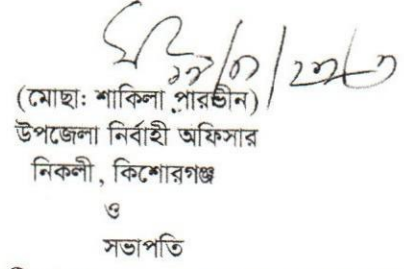 (মোছা: শাকিলা পারভীন)
উপজেলা নির্বাহী অফিসার
নিকলী, কিশোরগঞ্জ
ও
সভাপতি